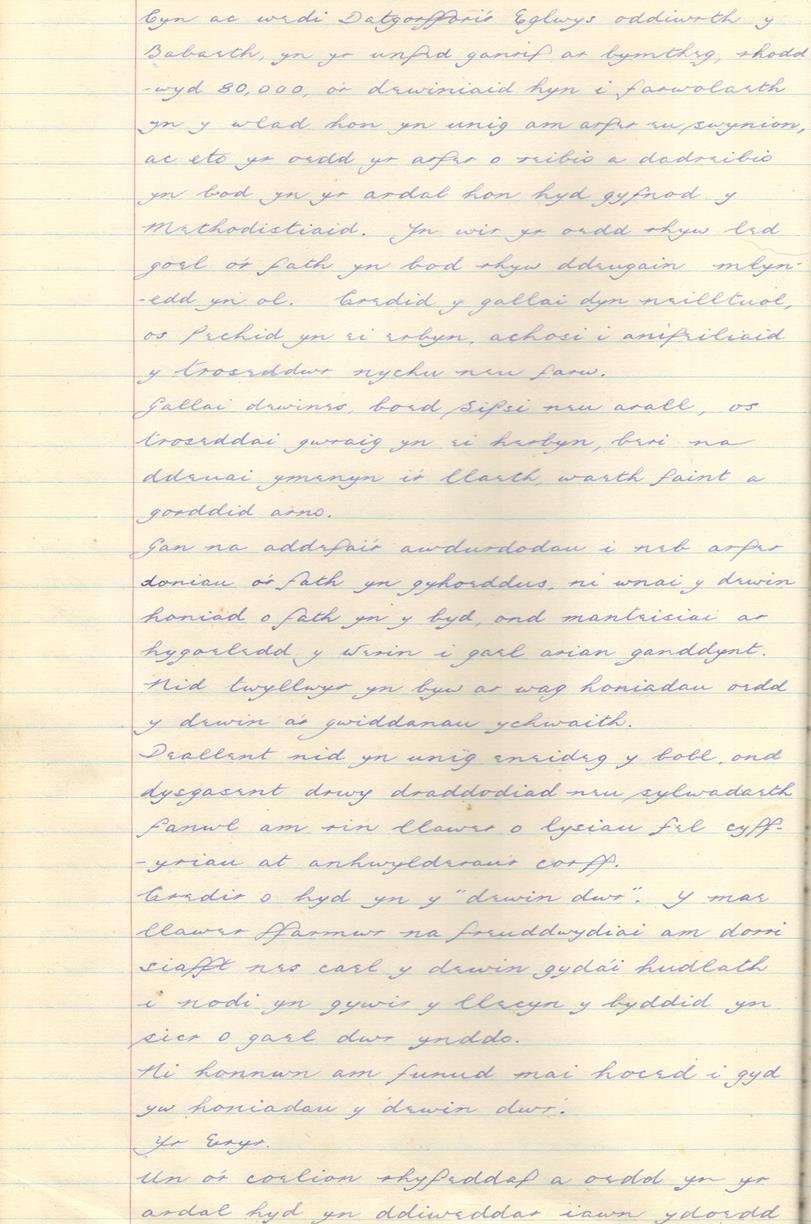 Cyn ac wedi Datgorffori'r Eglwys oddiwrth y
Babaeth, yn yr unfed ganrif ar bymtheg, rhodd
-wyd 80,000, o'r dewiniaid hyn i farwolaeth
yn y wlad hon yn unig am arfer eu swynion,
ac eto yr oedd yr arfer o reibio a dadreibio
yn bod yn yr ardal hon hyd gyfnod y
Methodistiaid. Yn wir yr oedd rhyw led
goel o'r fath yn bod rhyw ddeugain mlyn-
-edd yn ol. Credid y gallai dyn neilltuol,
os Pechid yn ei erbyn, achosi i anifeiliaid
y troseddwr nychu neu farw.
Gallai dewines, boed Sipsi neu arall, os
troseddai gwraig yn ei herbyn, beri na
ddeuai ymenyn i'r llaeth, waeth faint a
gorddid arno.
Gan na addefai'r awdurdodau i neb arfer
doniau o'r fath yn gyhoeddus, ni wnai y dewin
honiad o fath yn y byd, ond manteisiai ar
hygoeledd y Werin i gael arian ganddynt.
Nid twyllwyr yn byw ar wag honiadau oedd
y dewin a'r gwiddanau ychwaith.
Deallent nid yn unig eneideg y bobl, ond
dysgasent drwy draddodiad neu sylwadaeth
fanwl am rin llawer o lysiau fel cyff-
-yriau at anhwylderau'r corff.
Credir o hyd yn y "dewin dwr". Y mae
llawer ffarmwr na freuddwydiai am dorri
siafft nes cael y dewin gyda'i hudlath
i nodi yn gywir y llecyn y byddid yn
sicr o gael dwr ynddo.
Ni honnwn am funud mai hoced i gyd
yw honiadau y 'dewin dwr'.
Yr Eryr.
Un o'r coelion rhyfeddaf a oedd yn yr
ardal hyd yn ddiweddar iawn ydoedd